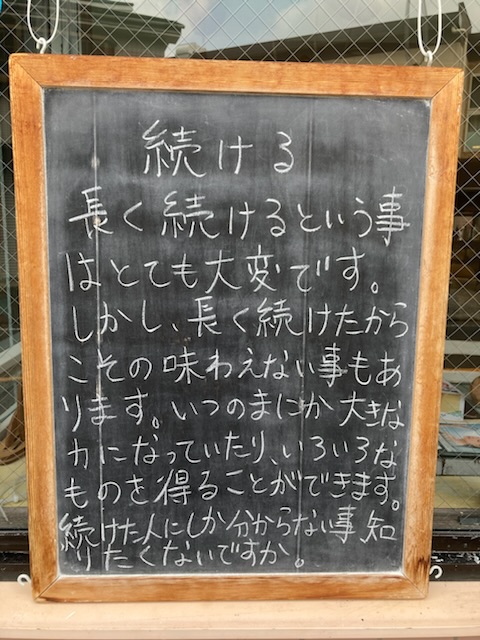 続ける
長く続けるという事
はとても大変です。
しかし、長く続けたから
こその味わえない事もあ
ります。いつのまにか大きな
力になっていたり、いろいろな
ものを得ることができます。
続けた人にしか分からない事、知
りたくないですか。